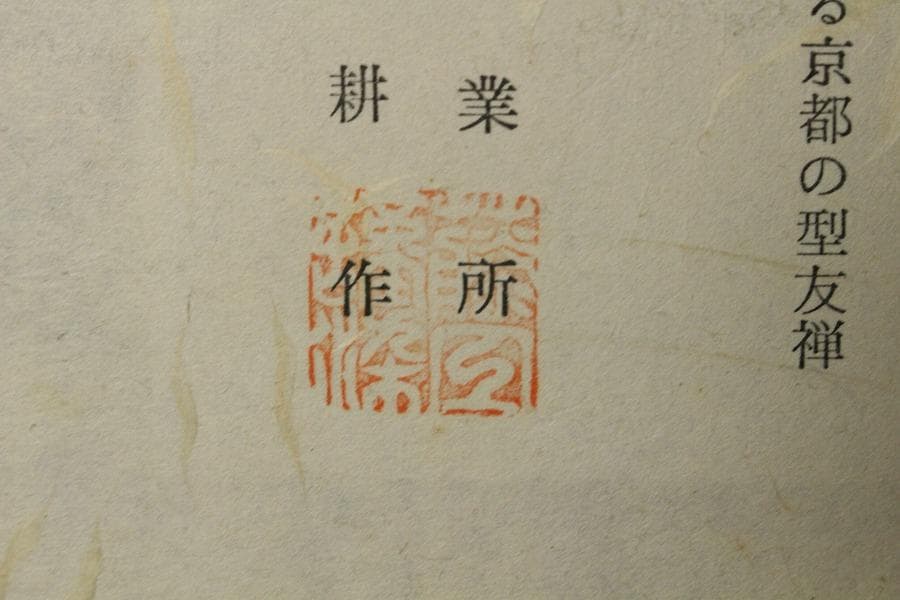 る京都の型友禅
業所
耕作